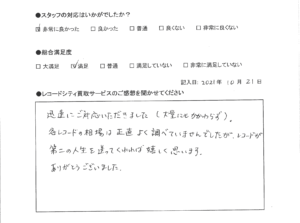 ●スタッフの対応はいかがでしたか？
☑ 非常に良かった □ 良かった □ 普通 □ 良くない □ 非常に良くない
●総合満足度
□ 大満足 ☑ 満足 □ 普通 □ 満足していない □ 非常に満足していない
記入日: 2021年 10月 21日
●レコードシティ買取サービスのご感想を聞かせてください
迅速にご対応いただきました(大量にもかかわらず)。
各レコードの相場は正直よく調べていませんでしたが、レコードが
第二の人生を送ってくれれば嬉しく思います。
ありがとうございました。